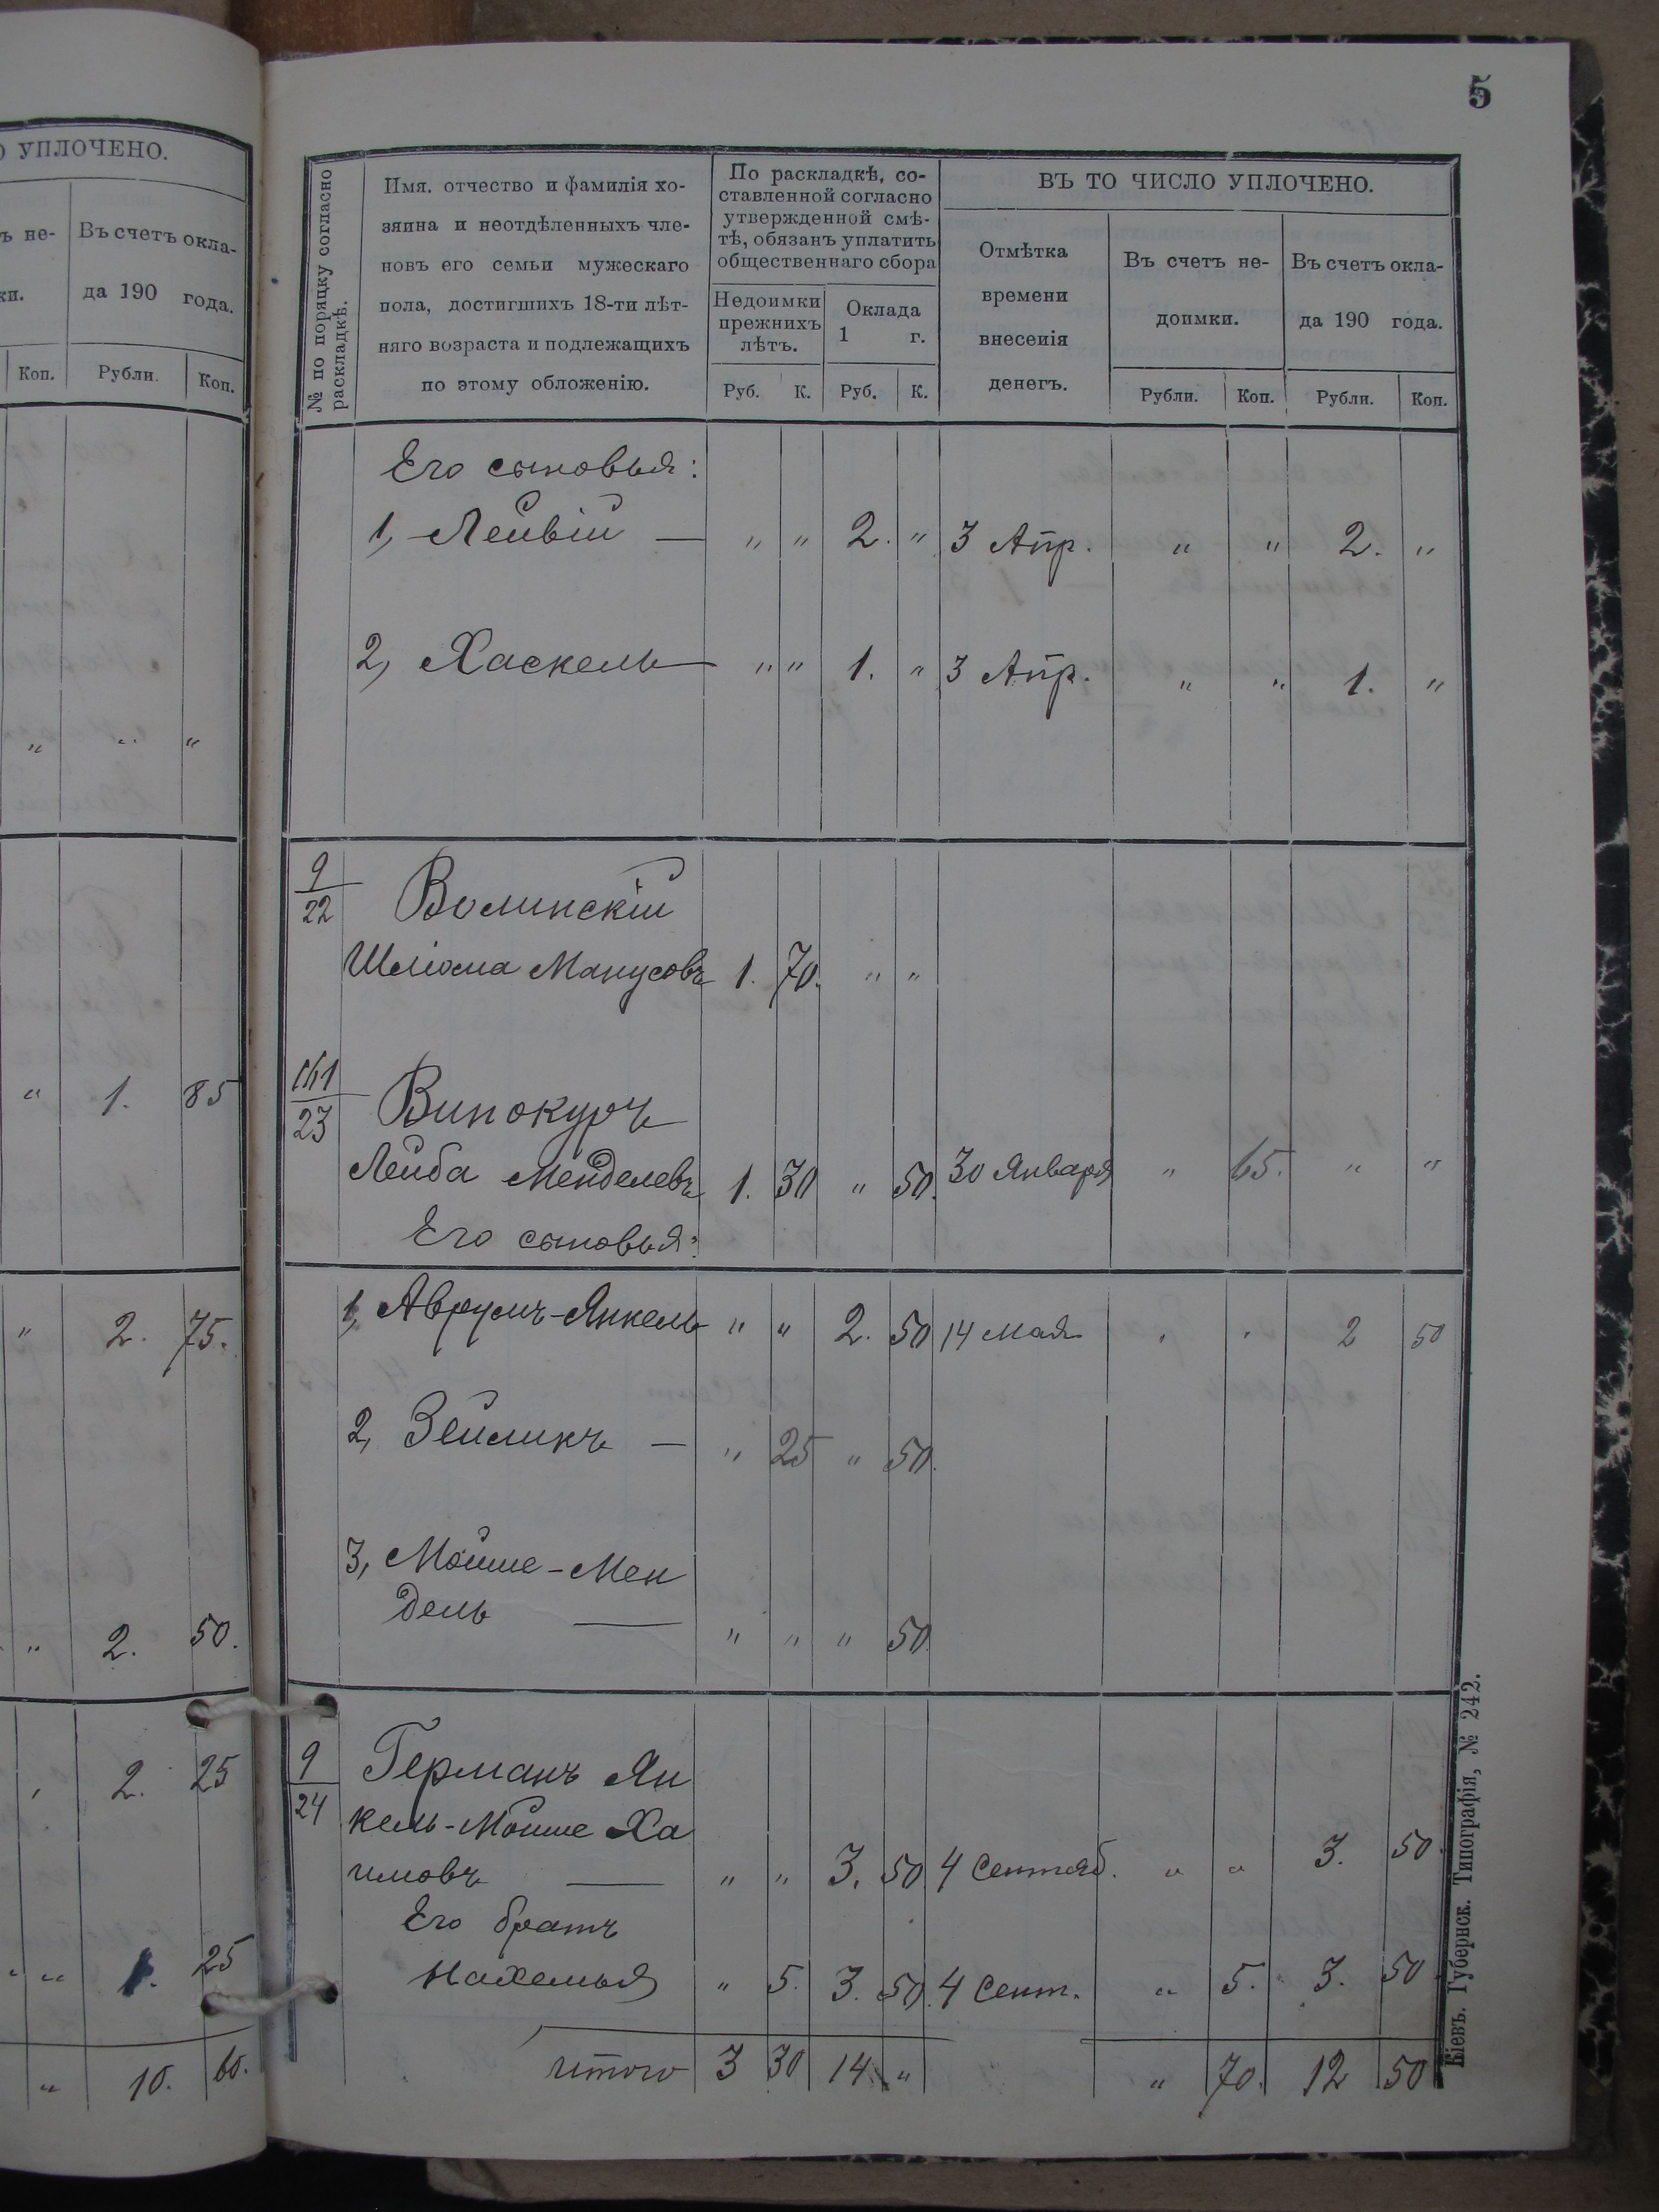 О УПЛОЧЕНО.
ъ не-
Въ счетъ окла-
да 190 года.
Коп.
Рубли.
Коп.
„ „ „
„ 1. 85
„ 2. 75.
„ 2. 50.
2. 25
„ „ 1. 25
„ 10. 60.
5
№ по порядку согласно
раскладкѣ.
Имя, отчество и фамилія хо-
зяина и неотдѣленныхъ чле-
новъ его семьи мужескаго
пола, достигшихъ 18-ти лѣт-
няго возраста и подлежащихъ
по этому обложенію.
По раскладкѣ, со-
ставленной согласно
утвержденной смѣ-
тѣ, обязанъ уплатить
общественнаго сбора
Недоимки
прежнихъ
лѣтъ.
Оклада
1 г.
Руб. К. Руб. К.
ВЪ ТО ЧИСЛО УПЛОЧЕНО.
Отмѣтка
времени
внесенія
денегъ.
Въ счетъ не-
доимки.
Въ счетъ окла-
да 190 года.
Рубли. Коп. Рубли. Коп.
Его сыновья:
1, Лейвій — „ „ 2. „ 3 Апр. „ „ 2. „
2, Хаскель — „ „ 1. „ 3 Апр. „ „ 1. „
9
22
Волинскій
Шліома Манусовъ 1. 70. „ „
23
Винокуръ
Лейба Менделевъ 1. 30 „ 50. 30 Января „ 65. „ „
Его сыновья:
1, Аврумъ-Янкель „ „ 2. 50 14 Мая „ „ 2 50
2, Зейликъ — „ 25 „ 50.
3, Мойше-Мен
дель — „ „ „ 50.
9
24
Германъ Ян
кель-Мойше Ха
имовъ — „ „ 3. 50 4 Сентяб. „ „ 3. 50.
Его братъ
Нахемья „ 5. 3. 50. 4 Сент. „ 5. 3. 50
итого 3 30 14 „ „ 70. 12 50
Кіевъ. Губернск. Типографія, № 242.